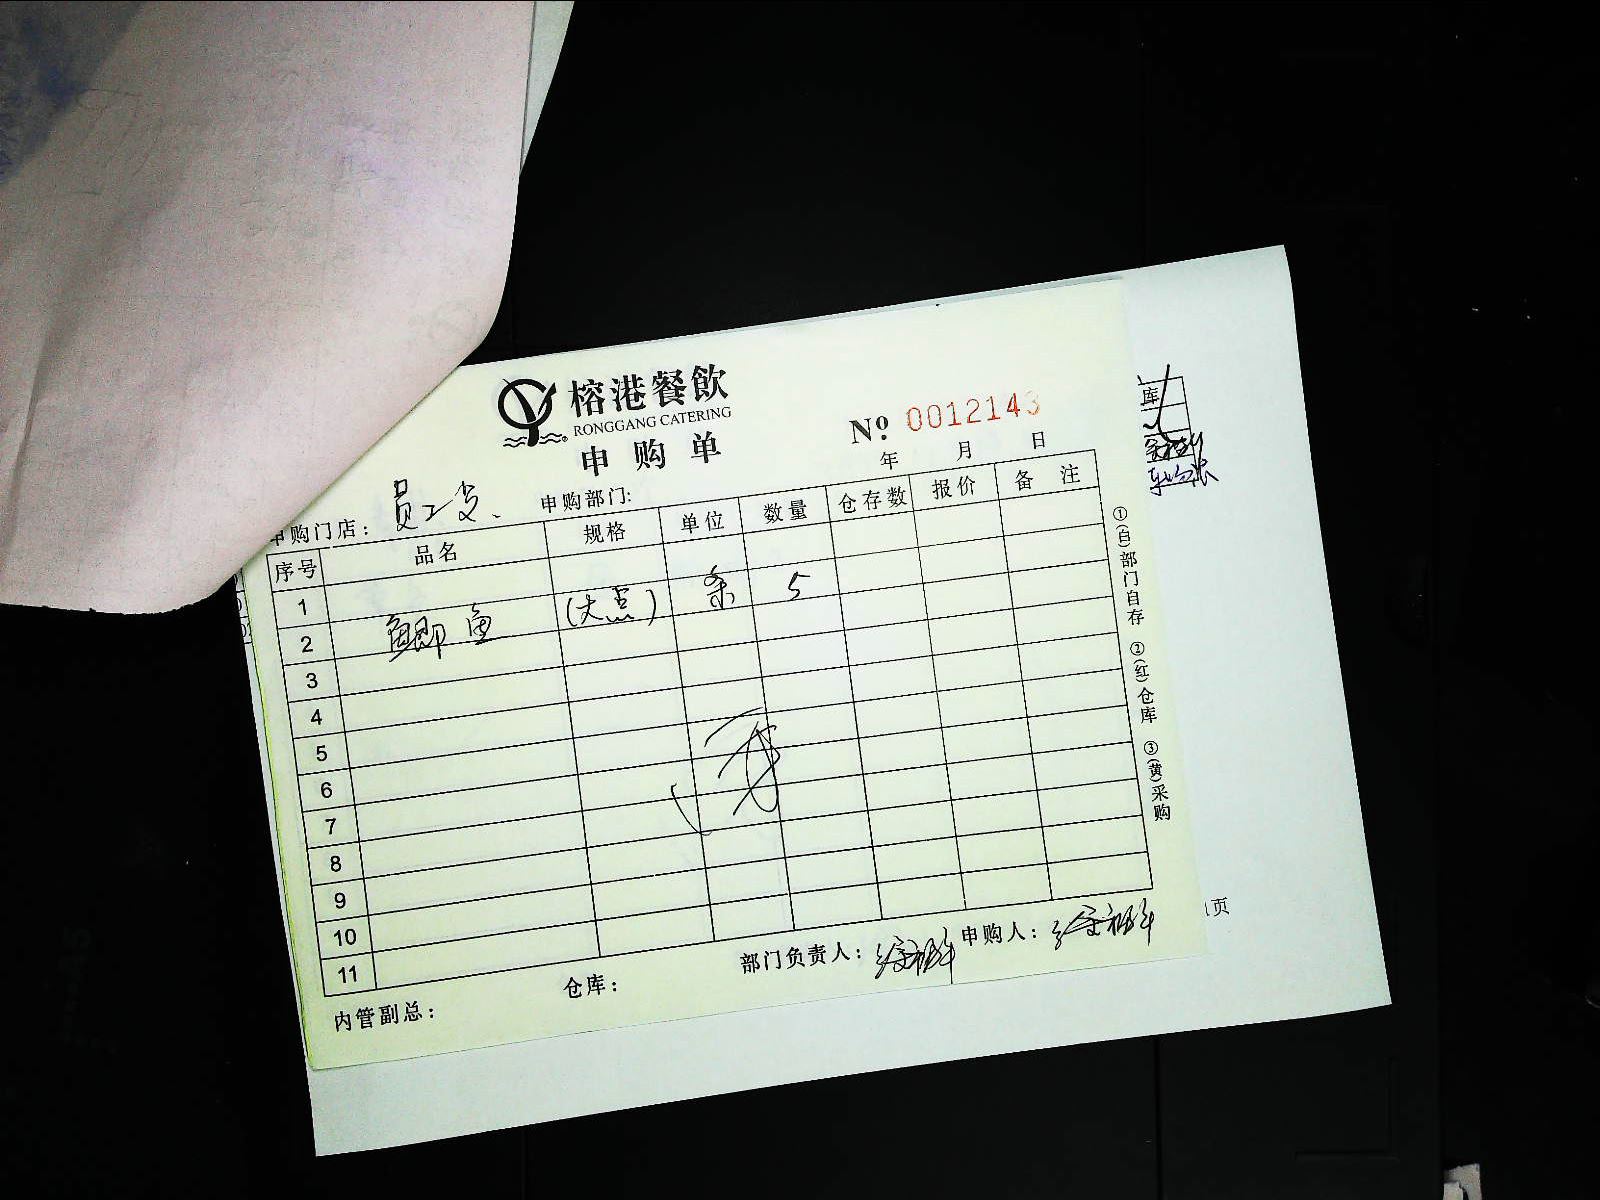 榕港餐飲
RONGGANG CATERING
申购单
№ 0012143
年 月 日
申购门店： 员工 申购部门:
序号 品名 规格 单位 数量 仓存数 报价 备注
1
2 鲫鱼 (大点) 条 5
3
4
5
6
7
8
9
10
11
内管副总： 仓库： 部门负责人： 申购人：
①(白)部门自存 ②(红)仓库 ③(黄)采购
库
页